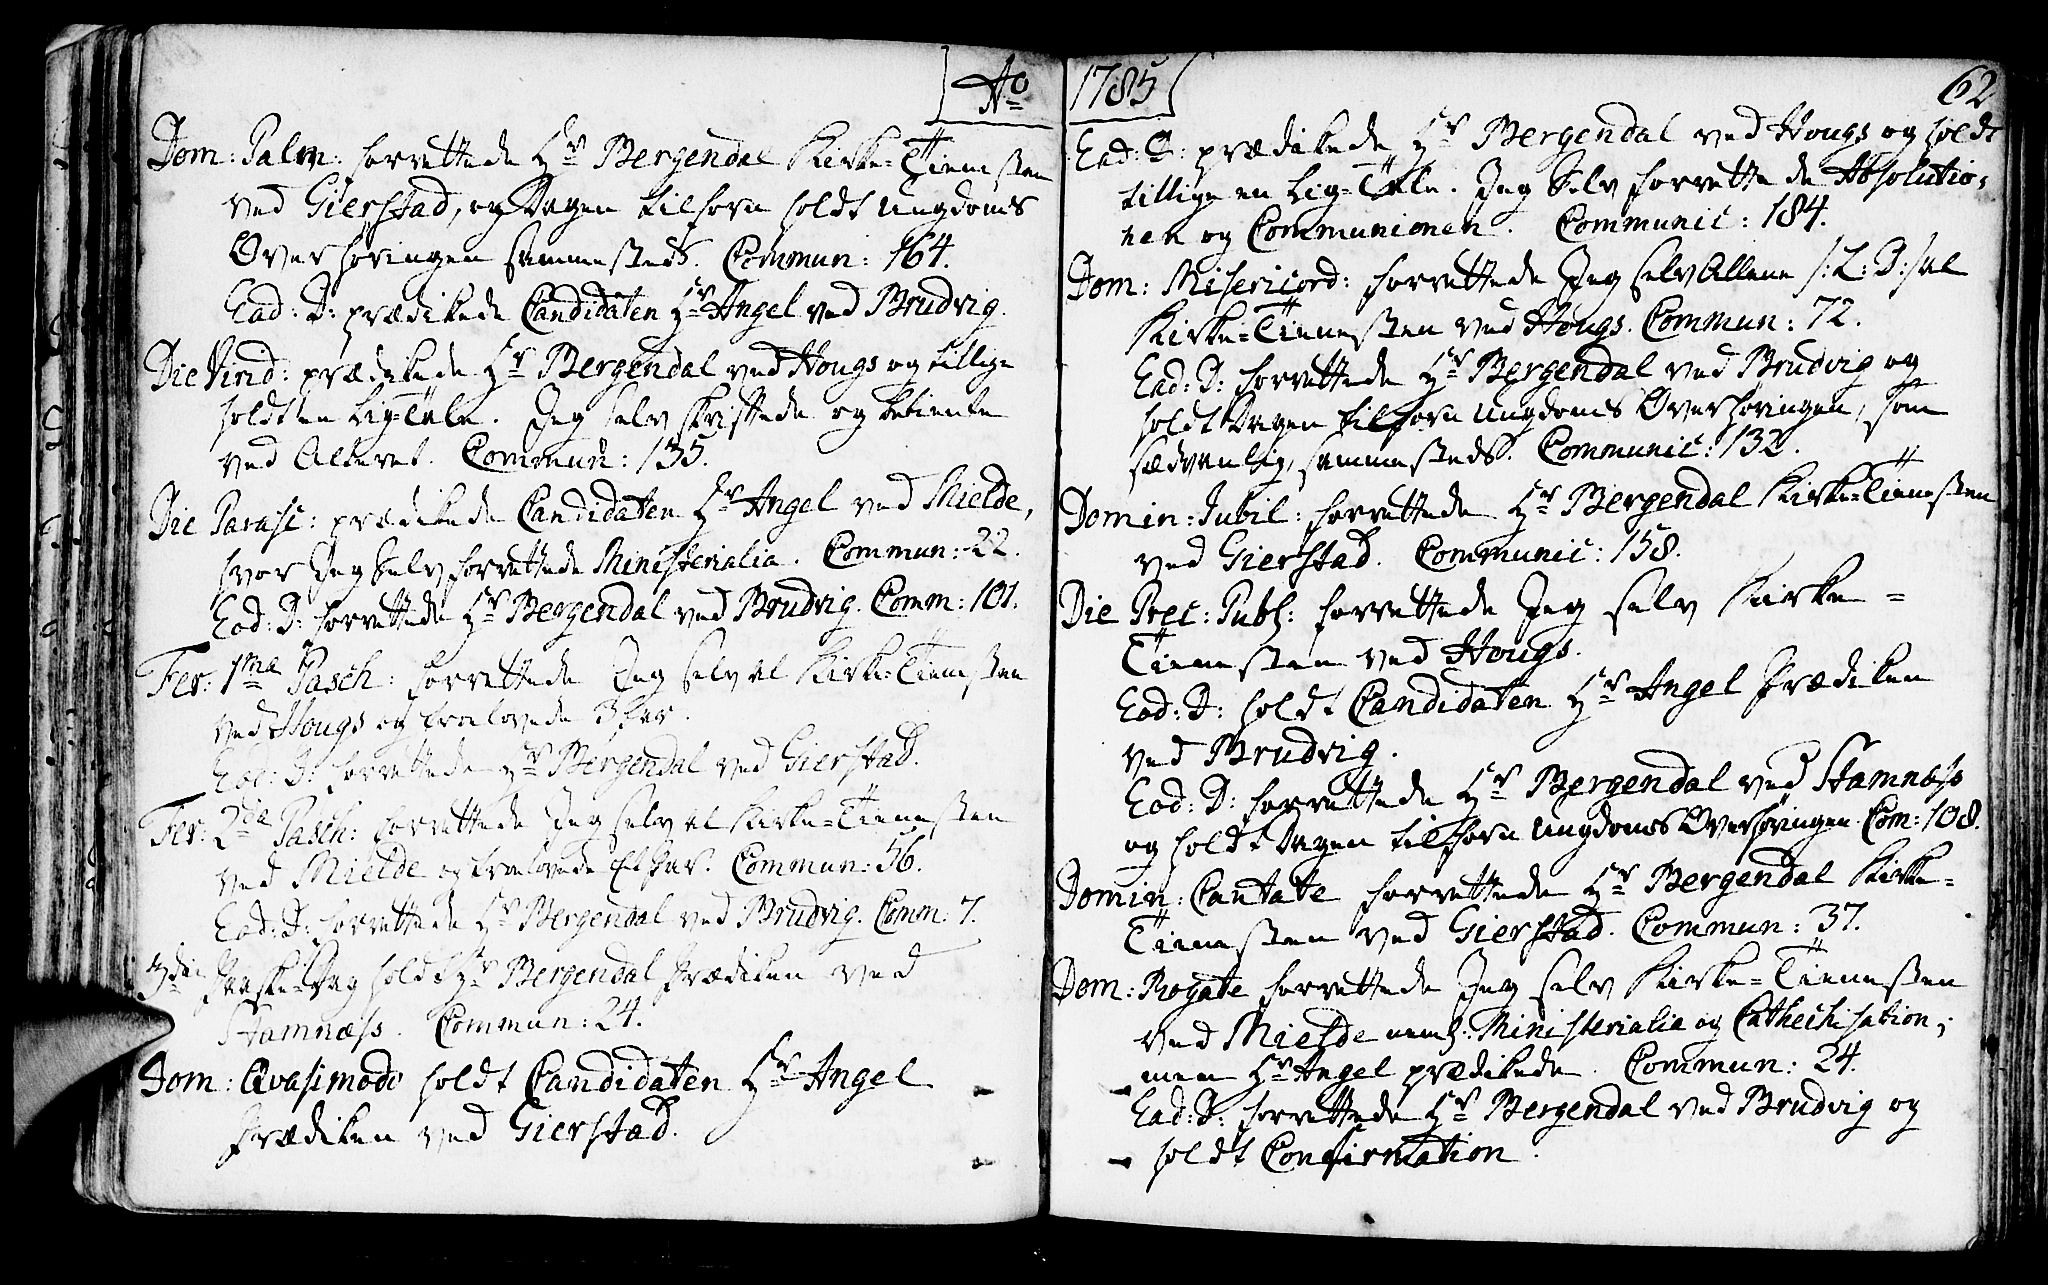 Ao 1785
62
Dom: Palm: forrettede Hr Bergendal Kirke-Tienesten
ved Gierstad, og Dagen tilforn holdt Ungdoms
Overhøringen sammesteds. Commun: 164.
Ead: D: prædikede Candidaten Hr Angel ved Brudvig.
Die Virid: prædikede Hr Bergendal ved Hougs og tillige
holdt en Lig-Tale. Jeg selv skriftede og betiente
ved Alteret. Commun: 135.
Die Parasc: prædikede Candidaten Hr Angel ved Mielde,
hvor Jeg Selv forrettede Ministerialia. Commun: 22.
Ead: D: forrettede Hr Bergendal ved Brudvig. Comm: 101.
Fer: 1ma Pasch: forrettede Jeg selv al Kirke-Tienesten
ved Hougs og trolovede 3 Par.
Ead: D: forrettede Hr Bergendal ved Gierstad.
Fer: 2da Pasch: forrettede Jeg selv al Kirke-Tienesten
ved Mielde og trolovede Et Par. Commun: 56.
Ead: D: forrettede Hr Bergendal ved Brudvig. Comm: 7.
3die Paaske-Dag holdt Hr Bergendal Prædiken ved
Stamnæss. Commun: 24.
Dom: Qvasimodo holdt Candidaten Hr Angel
Prædiken ved Gierstad.
Ead: D: prædikede Hr Bergendal ved Hougs og holdt
tillige en Lig-Tale. Jeg Selv forrettede Absolutio-
nen og Communionen. Communic: 184.
Dom: Misericord: forrettede Jeg selv Allene /: L: D: / al
Kirke-Tienesten ved Hougs. Commun: 72.
Ead: D: forrettede Hr Bergendal ved Brudvig og
holdt Dagen tilforn Ungdoms Overhøringen, som
sædvanlig, sammesteds. Communic: 132.
Domin: Jubil: forrettede Hr Bergendal Kirke-Tienesten
ved Gierstad. Communic: 158.
Die Prec: Publ: forrettede Jeg selv Kirke-
Tienesten ved Hougs.
Ead: D: holdt Candidaten Hr Angel Prædiken
ved Brudvig.
Ead: D: forrettede Hr Bergendal ved Stamnæss
og holdt Dagen tilforn Ungdoms Overhøringen. Com: 108.
Domin: Cantate forrettede Hr Bergendal Kirke-
Tienesten ved Gierstad. Commun: 37.
Dom: Rogate forrettede Jeg selv Kirke-Tienesten
ved Mielde neml: Ministerialia og Cathechisation;
men Hr Angel prædikede. Commun: 24.
Ead: D: forrettede Hr Bergendal ved Brudvig og
holdt Confirmation.